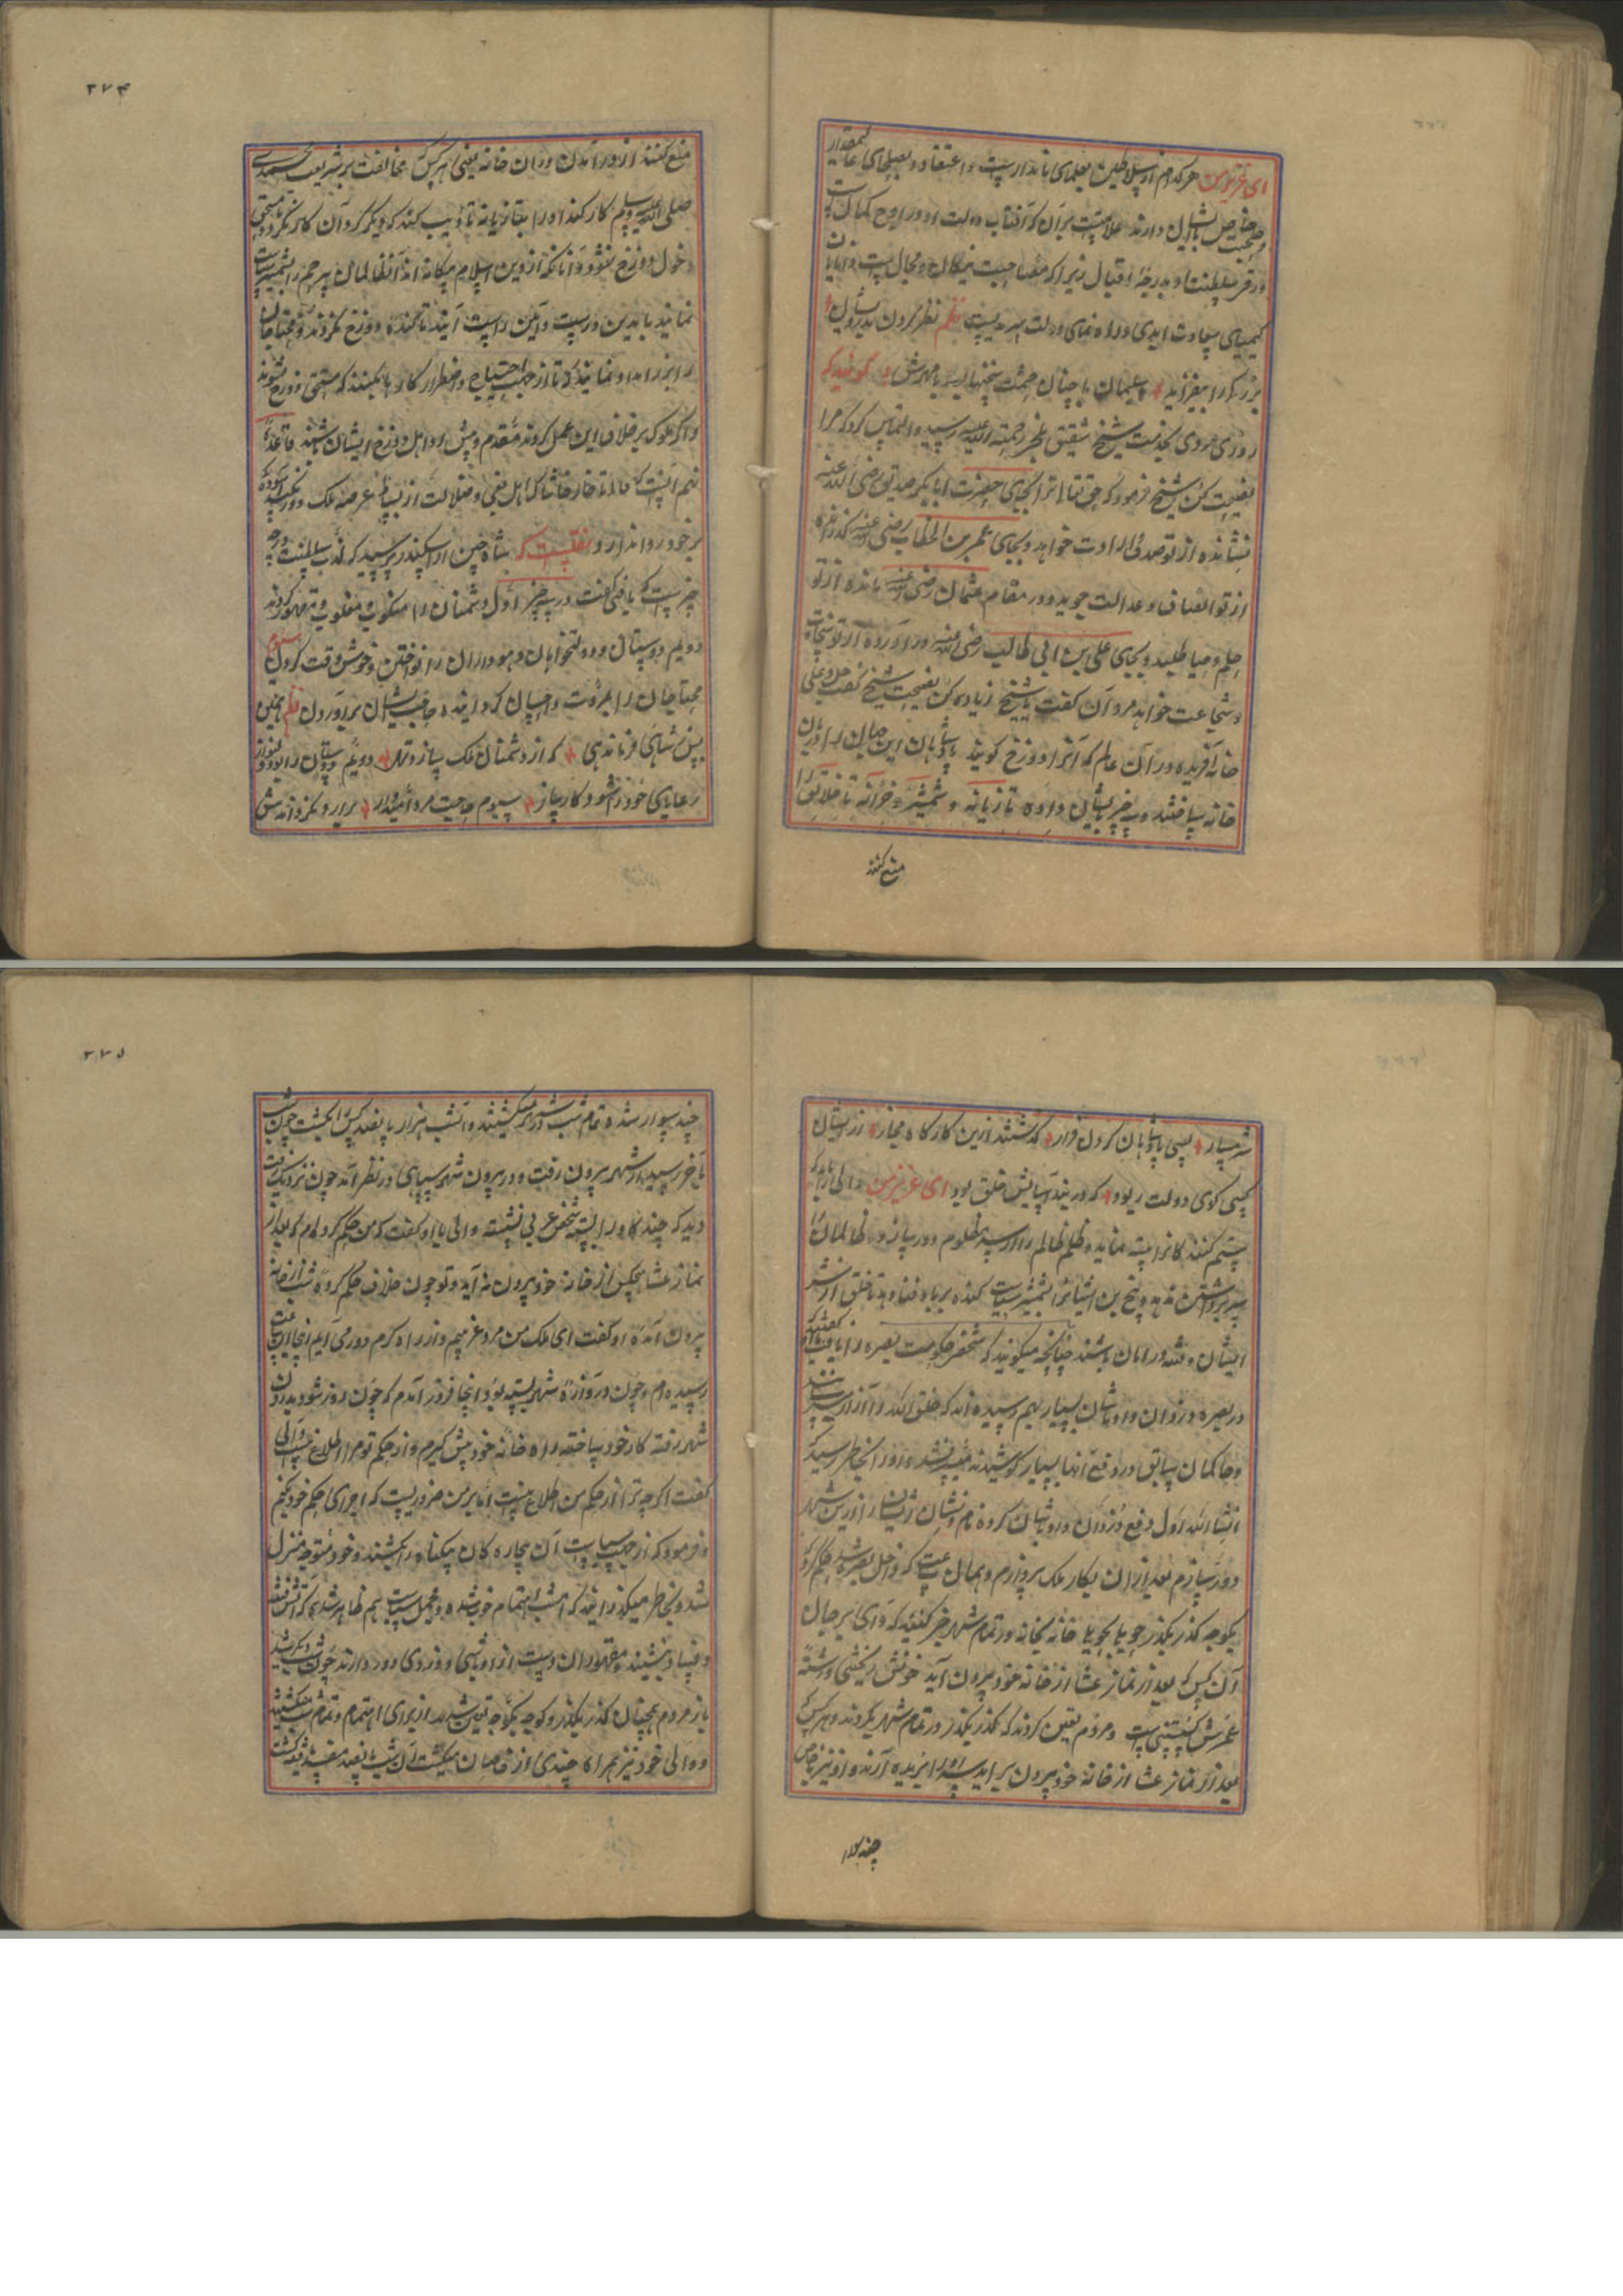 ای عزیز من هر کدام از سلاطین بعلمای نامدار است و اعتقاد و بصلحای عالیمقدار
و صحبت خاص بایشان دارند علامتست بر آن که آفتاب دولت او در اوج کمال است
و قمر سلطنت او بدرجهٔ اقبال زیرا که مصاحبت نیکان و مجالست دانایان
کیمیای سعادت ابدی و راه نمای دولت سرمدیست نظم نظر کردن بدرویشان
بزرگی را بیفزاید سلیمان با چنان حشمت نظرها بود با مورش گویند که
روزی مردی بخدمت شیخ شقیق بلخی رحمة الله علیه رسید و التماس کرد که مرا
نصیحت کن شیخ فرمود که حق تعالی ترا بجای حضرت ابابکر صدیق رضی الله عنه
نشانده از تو صدق ارادت خواهد و بجای عمر بن الخطاب رضی الله عنه
از تو انصاف و عدالت جوید و در مقام عثمان رضی الله عنه مانده از تو
حلم و حیا طلبد و بجای علی بن ابی طالب رضی الله عنه در آورده از تو سخاوت
و شجاعت خواهد مرد آن گفت یا شیخ زیاده کن نصیحت شیخ گفت حق تعالی
خانه آفریده در آن عالم که آنرا دوزخ گویند پادشاهان این جهان را دربان
خانه ساختند و سه چیز بایشان داده تازیانه و شمشیر و خزانه تا خلایق را
منع کنند
۲۷۴
منع کنند از در آمدن در آن خانه یعنی هر کس که مخالفت بر شریعت محمدی
صلی الله علیه و سلم کار کند او را بتازیانه تادیب کند که دیگر گرد آن کار نگردد و مستحق
دخول دوزخ نشود و آنانکه از دین اسلام بیگانه اند آن ظالمان بیرحم را بشمشیر سیاست
نمایند تا بدین درست و آئین راست آیند تا کنده دوزخ نگردند و محتاجان
را بزر امداد نمایند تا از جهت احتیاج و اضطرار کار نا پسند که مستحق دوزخ شوند
و اگر ملوک بر خلاف این عمل کردند مقدم و پیش رو اهل دوزخ ایشان باشند قاعدهٔ
نهم آنست که ملک را تا خار خاشاک اهل بغی و ضلالت از بساط عرصه ملک دور نکند آسوده
بر خود روا ندارد نقلیست که شاه چین از اسکندر پرسید که لذت سلطنت در چه
چیزست که یافتی گفت در سه چیز اول دشمنان را منکوب و مغلوب و مقهور کردن
دویم دوستان و دولتخواهان و هواداران را نواختن و خوش وقت کردن سیوم
محتاجان را بمروت و احسان گردانیده حاجت ایشان برآوردن نظم همچنین
پیش شاهی فرماندهی که از دشمنان ملک سازد تهی دویم دوستان را بود دلنواز
رعایای خود را شود کارساز سیوم حاجت مرد امیدوار برآرد نگرداندش
شرمسار بسی پادشاهان گردن فراز گذشتند ازین کارگاه مجاز از ایشان
کسی گوی دولت ربود که در بند آسایش خلق بود ای عزیز من والی را باید که
ستم کنندگانرا تنبیه نماید و ظلم ظالم را از سر مظلوم دور سازد و ظالمان را
سر بر داشتن ندهد و بیخ بن ایشانرا بشمشیر سیاست کنده بر باد فنا دهد تا خلق از شر
ایشان و فتنه در امان باشند چنانچه میگویند که شخصی حکومت بصره را یافت گفتند که
در بصره دزدان و اوباشان بسیار بهم رسیده اند که خلق الله را آزار میرسانند
و حاکمان سابق در دفع آنها بسیار کوشیدند میسر نشد او را بخاطر رسید که
انشاء الله اول دفع دزدان و اوباشان کرده نام و نشان ایشان را ازین شهر
دور سازم بعد از آن بکار ملک پردازم و همان ساعت که داخل بصره شد حکم کرد که
کوچه بکوچه گذر بگذر جو بجو خانه بخانه در تمام شهر خبر کنند که وای بر جان
آن کس که بعد از نماز عشا از خانه خود بیرون آید خونش ریختنی و رشتهٔ
عمرش گسستنی است و مردم تعین کردند که گذر بگذر در تمام شهر بگردند و هر کس که
بعد از نماز عشا از خانهٔ خود بیرون برآید سر او را بریده آرند و او نیز خاص
چند سوار
۲۷۵
چند سوار شده تمام شب در شهر میگشتند و آن شب هزار پانصد کس را بکشت چون شب
بآخر رسید از شهر بیرون رفت و در بیرون شهر سیاهی در نظر آمد چون نزدیک رفت
دید که چند گاو را بسته شخص عربی نشسته والی باو گفت که من حکم کرده ام که بعد از
نماز عشا هیچکس از خانه خود بیرون نه آید و تو چون خلاف حکم کرده شب از خانه
بیرون آمدهٔ او گفت ای ملک من مرد غریبم و از راه دور می آیم اینجا این ساعت
رسیده ام و چون دروازهٔ شهر بسته بود اینجا فرود آمدم که چون روز شود بدرون
شهر رفته کار خود ساخته راه خانهٔ خود پیش گیرم و از حکم تو مرا اطلاع نیست والی
گفت اگرچه ترا از حکم من اطلاع نیست اما بر من ضروریست که اجرای حکم خود کنم
و فرمود که از جهت سیاست آن بیچاره گان بیگناه را بکشتند و خود متوجه منزل
شد و بخاطر میگذرانید که امشب اهتمام خوب شده و محل سیاست هم ظاهر شد که آتش فتنه
و فساد بنشیند و مقهوران دست از اوباشی و دزدی دور دارند چون شب دیگر شد
باز مردم همچنان گذر بگذر و کوچه بکوچه تعین شدند از برای اهتمام و تمام شب میگشتند
و والی خود نیز همراه چندی از خاصان میگشت آن شب پانصد مفسد را بقتل